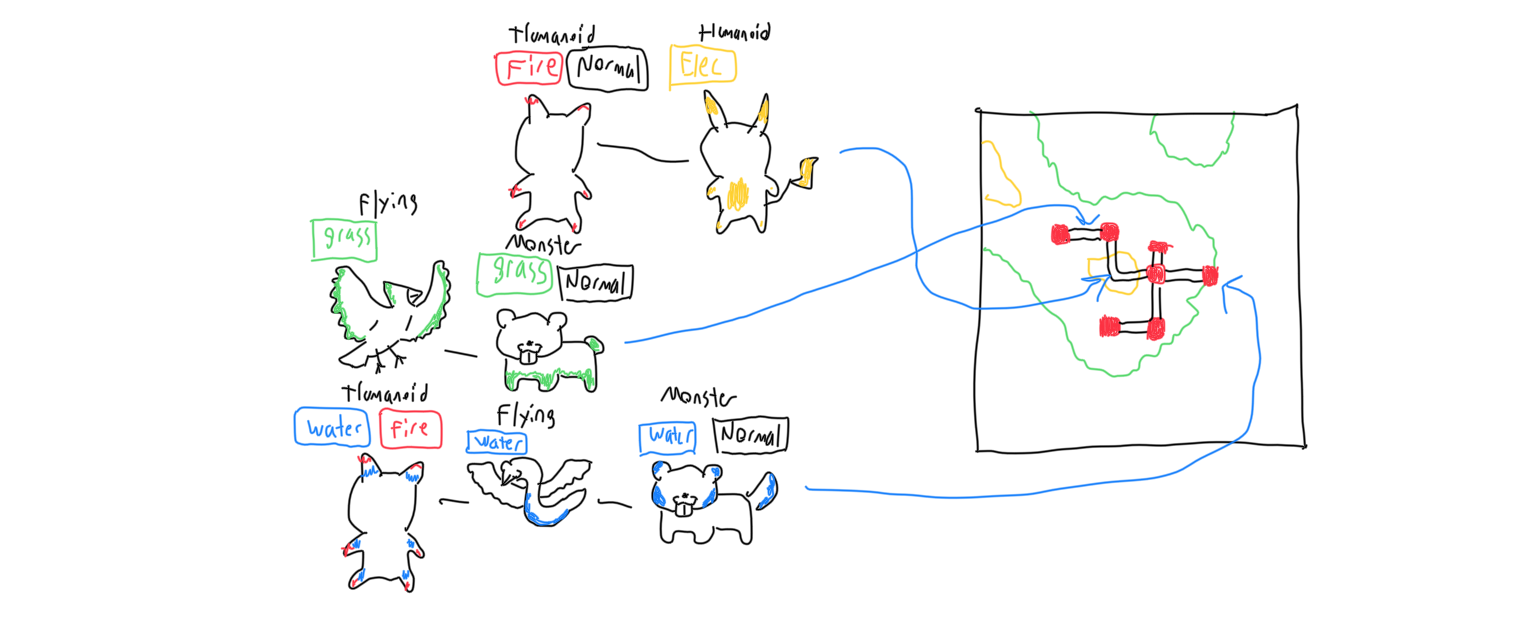 Humanoid
Humanoid
Fire
Normal
Elec
Flying
grass
Monster
grass
Normal
Humanoid
water
fire
Flying
water
Monster
water
Normal